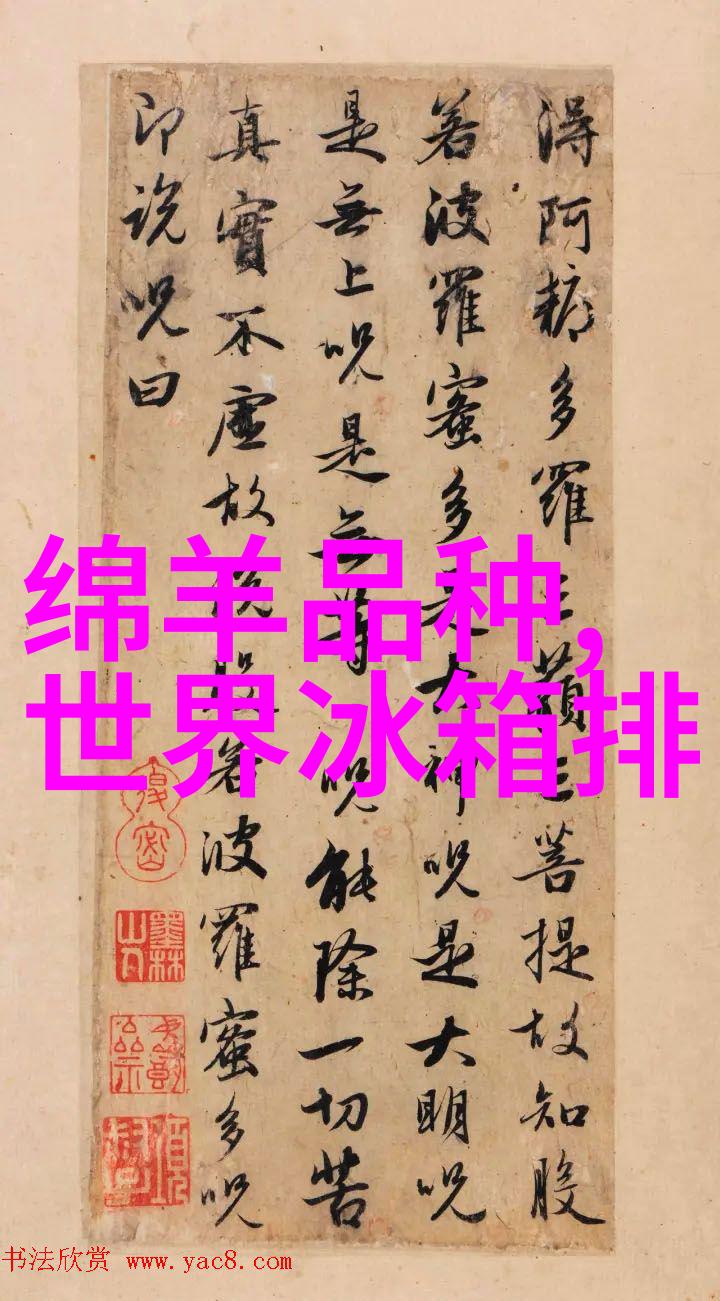 得阿耨多羅三藐三菩提故知般
若波羅蜜多是大神呪是大明呪
是無上呪是无等呪能除一切苦
真實不虛故說般若波羅蜜多呪
即說呪曰
绵羊品种,
世界冰箱排
墨林山人
书法欣赏 www.yac8.com